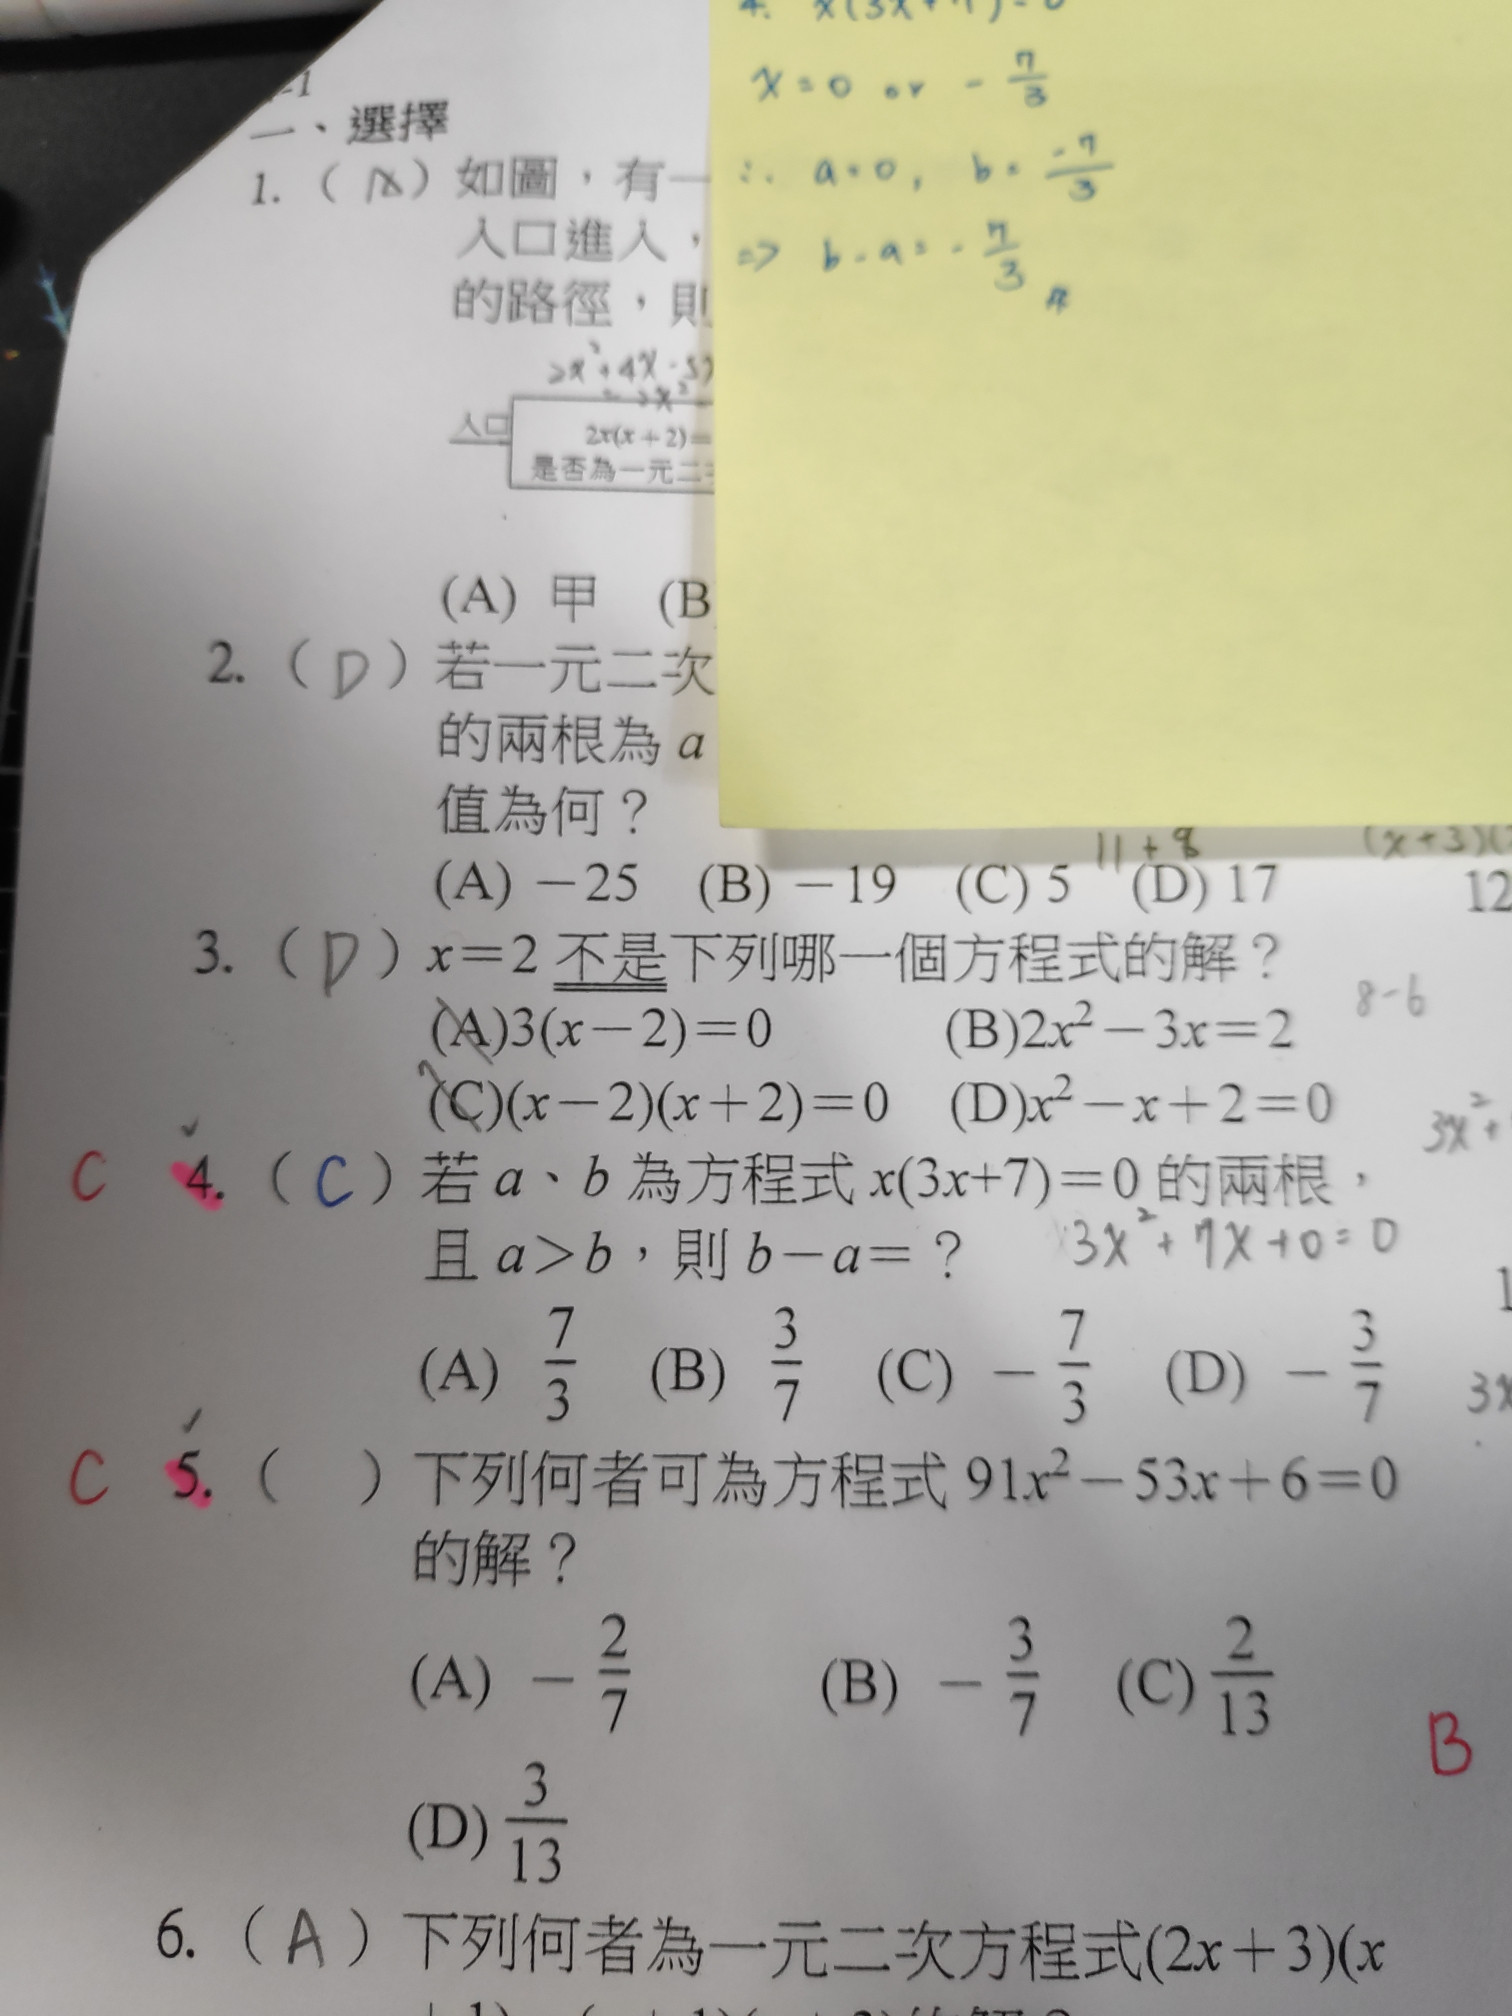 4. x(3x+7)=0
x=0 or -7/3
∴ a=0, b=-7/3
=> b-a=-7/3 #
-1
一、選擇
1.（A）如圖，有一
入口進入，
的路徑，則
2x²+4x-5x
=2x²-
入口
2x(x+2)=
是否為一元二
(A) 甲 (B
2.（D）若一元二次
的兩根為 a
值為何？
11+8 (x+3)(
(A) －25 (B) －19 (C) 5 (D) 17
12
3.（D）x=2 不是下列哪一個方程式的解？
8-6
(A)3(x－2)=0 (B)2x²－3x=2
(C)(x－2)(x+2)=0 (D)x²－x+2=0
3x²+
C 4.（C）若 a、b 為方程式 x(3x+7)=0 的兩根，
且 a>b，則 b－a=？ 3x²+7x+0=0
1
(A) 7/3 (B) 3/7 (C) －7/3 (D) －3/7
3x
C 5.（ ）下列何者可為方程式 91x²－53x+6=0
的解？
(A) －2/7 (B) －3/7 (C) 2/13
B
(D) 3/13
6.（A）下列何者為一元二次方程式(2x+3)(x